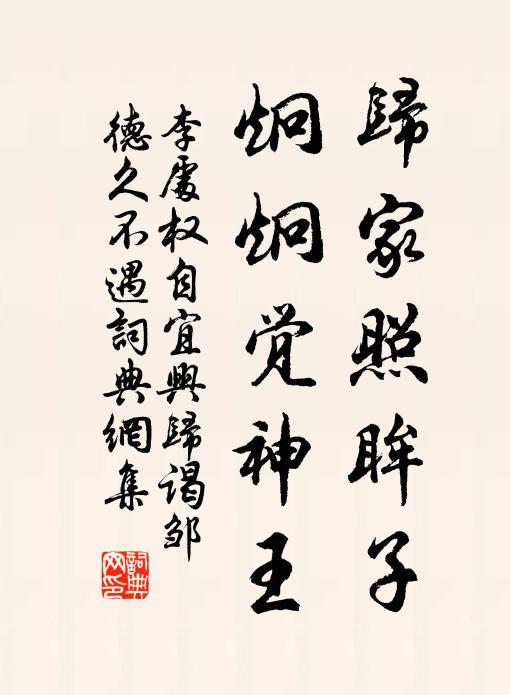 歸家照眸子
炯炯觉神王
李處权自宜興歸谒邹
德久不遇詞典網集
詞典
网印